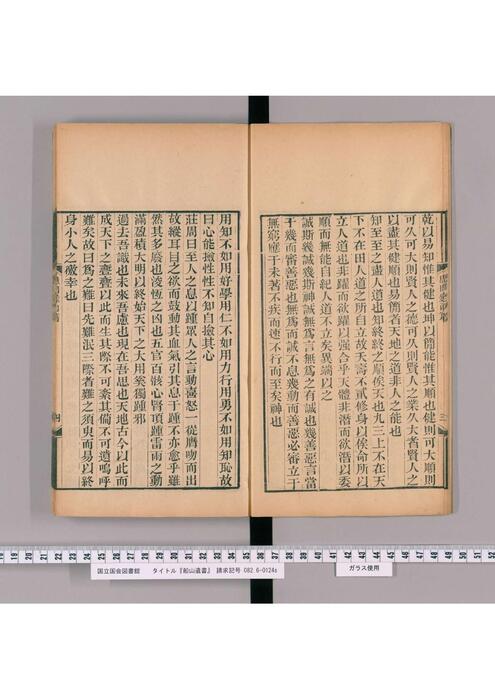 乾以易知惟其健也坤以簡能惟其順也健則可大順則
可久可大則賢人之德可久則賢人之業久大者賢人之
以盡其健順也易簡者天地之道非人之能也
知至至之盡人道也知終終之順俟天也九三上不在天
下不在田人道之所自立故夭壽不貳修身以俟命所以
立人道也非躍而欲躍以强合乎天體非潛而欲潛以委
順而無能自紀人道不立矣異端以之
誠斯幾誠幾斯神誠無爲言無爲之有誠也幾善惡言當
于幾而審善惡也無爲而誠不息幾動而善惡必審立于
無窮應于未著不疾而速不行而至矣神也
三
用知不如用好學用仁不如用力行用勇不如用知恥故
曰心能撿性性不知自撿其心
莊周曰至人之息以踵眾人之言動喜怒一從膺吻而出
故縱耳目之欲而鼓動其血氣引其息于踵不亦愈乎雖
然其多廢也淩恆之凶也五官百骸心腎頂踵雷雨之動
滿盈積大明以終始天下之大用奚獨踵邪
過去吾識也未來吾慮也現在吾思也天地古今以此而
成天下之亹亹以此而生其際不可紊其備不可遺嗚呼
難矣故曰爲之難曰先難泯三際者難之須臾而易以終
身小人之徼幸也
四
国立国会図書館 タイトル『船山遺書』 請求記号 082.6-0124s
ガラス使用